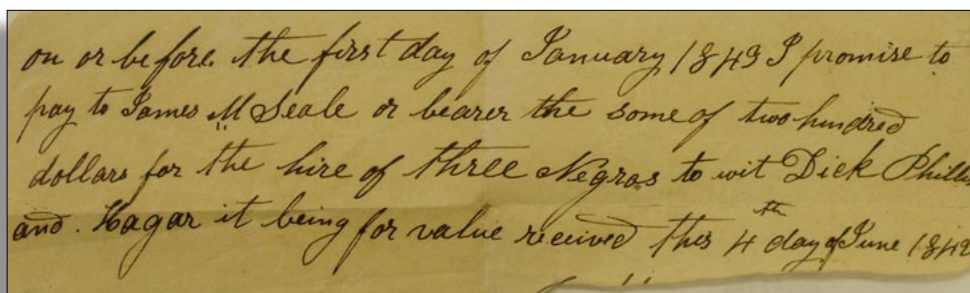 on or before the first day of January 1843 I promise to
pay to James M Seale or bearer the some of two hundred
dollars for the hire of three Negros to wit Dick
and. Hagar it being for value received this 4th day of June 1842